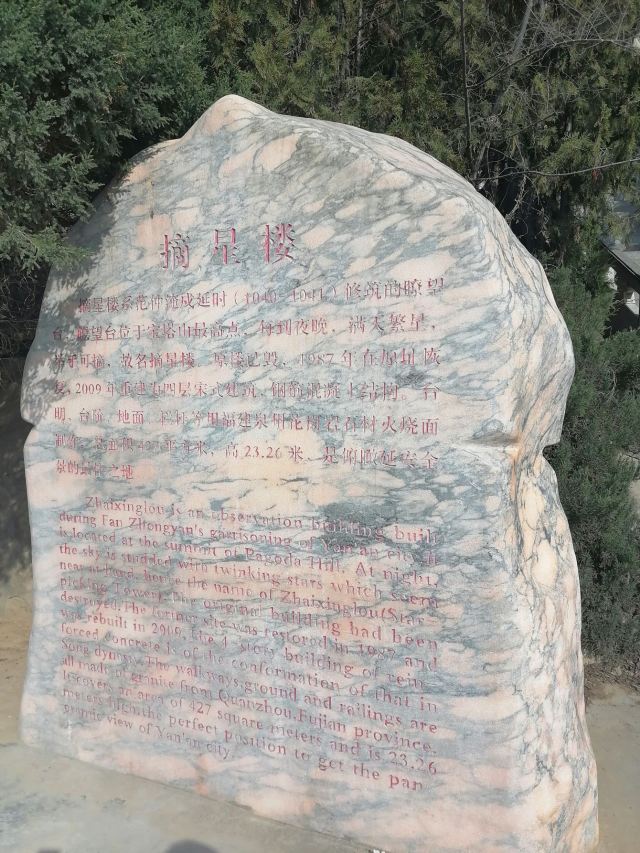 摘星楼
摘星楼系范仲淹戍延时（1040-1041）修筑的瞭望
台，瞭望台位于宝塔山最高点，每到夜晚，满天繁星，
举手可摘，故名摘星楼。原楼已毁，1987年在原址恢
复，2009年重建为四层宋式建筑，钢筋混凝土结构。台
明、台阶、地面、栏杆等用福建泉州花岗岩石材火烧面
制作。总面积427平方米，高23.26米，是俯瞰延安全
景的最佳之地
Zhaixinglou is an observation building built
during Fan Zhongyan's garrisoning of Yan'an city. It
is located at the summit of Pagoda Hill. At night,
the sky is studded with twinking stars which seem
near at hand, hence the name of Zhaixinglou(Star-
picking Tower). The original building had been
destroyed. The former site was restored in 1987 and
was rebuilt in 2009. The 4 story building of rein-
forced concrete is of the conformation of that in
Song dynasty. The walkways, ground and railings are
all made of granite from Quanzhou, Fujian province.
It covers an area of 427 square meters and is 23.26
meters high, the perfect position to get the pan
oramic view of Yan'an city.